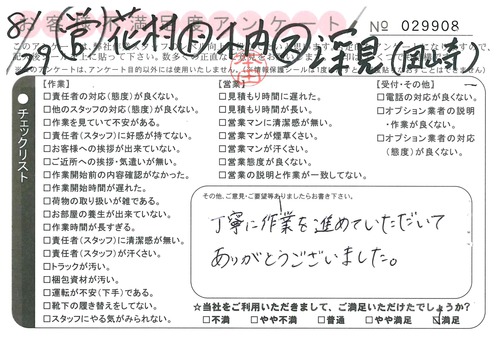 お客様満足度アンケート
№ 029908
8/29 (営)花村 木内 深見(岡崎)
チェックリスト
【作業】
□責任者の対応(態度)が良くない。
□他のスタッフの対応(態度)が良くない。
□作業を見ていて不安がある。
□責任者(スタッフ)に好感が持てない。
□お客様への挨拶が出来ていない。
□ご近所への挨拶・気遣いが無い。
□作業開始前の内容確認がなかった。
□作業開始時間が遅れた。
□荷物の取り扱いが雑である。
□お部屋の養生が出来ていない。
□作業時間が長すぎる。
□責任者(スタッフ)に清潔感が無い。
□責任者(スタッフ)が汗くさい。
□トラックが汚い。
□梱包資材が汚い。
□運転が不安(下手)である。
□靴下の履き替えをしてない。
□スタッフにやる気がみられない。
【営業】
□見積もり時間に遅れた。
□見積もり時間が長い。
□営業マンに清潔感が無い。
□営業マンが煙草くさい。
□営業マンが汗くさい。
□営業態度が良くない。
□営業の説明と作業が一致してない。
【受付・その他】
□電話の対応が良くない。
□オプション業者の説明・作業が良くない。
□オプション業者の対応(態度)が良くない。
その他、ご意見・ご要望等ありましたらお書き下さい。
丁寧に作業を進めていただいて
ありがとうございました。
☆当社をご利用いただきまして、ご満足いただけたでしょうか?
□不満 □やや不満 □普通 □やや満足 □満足